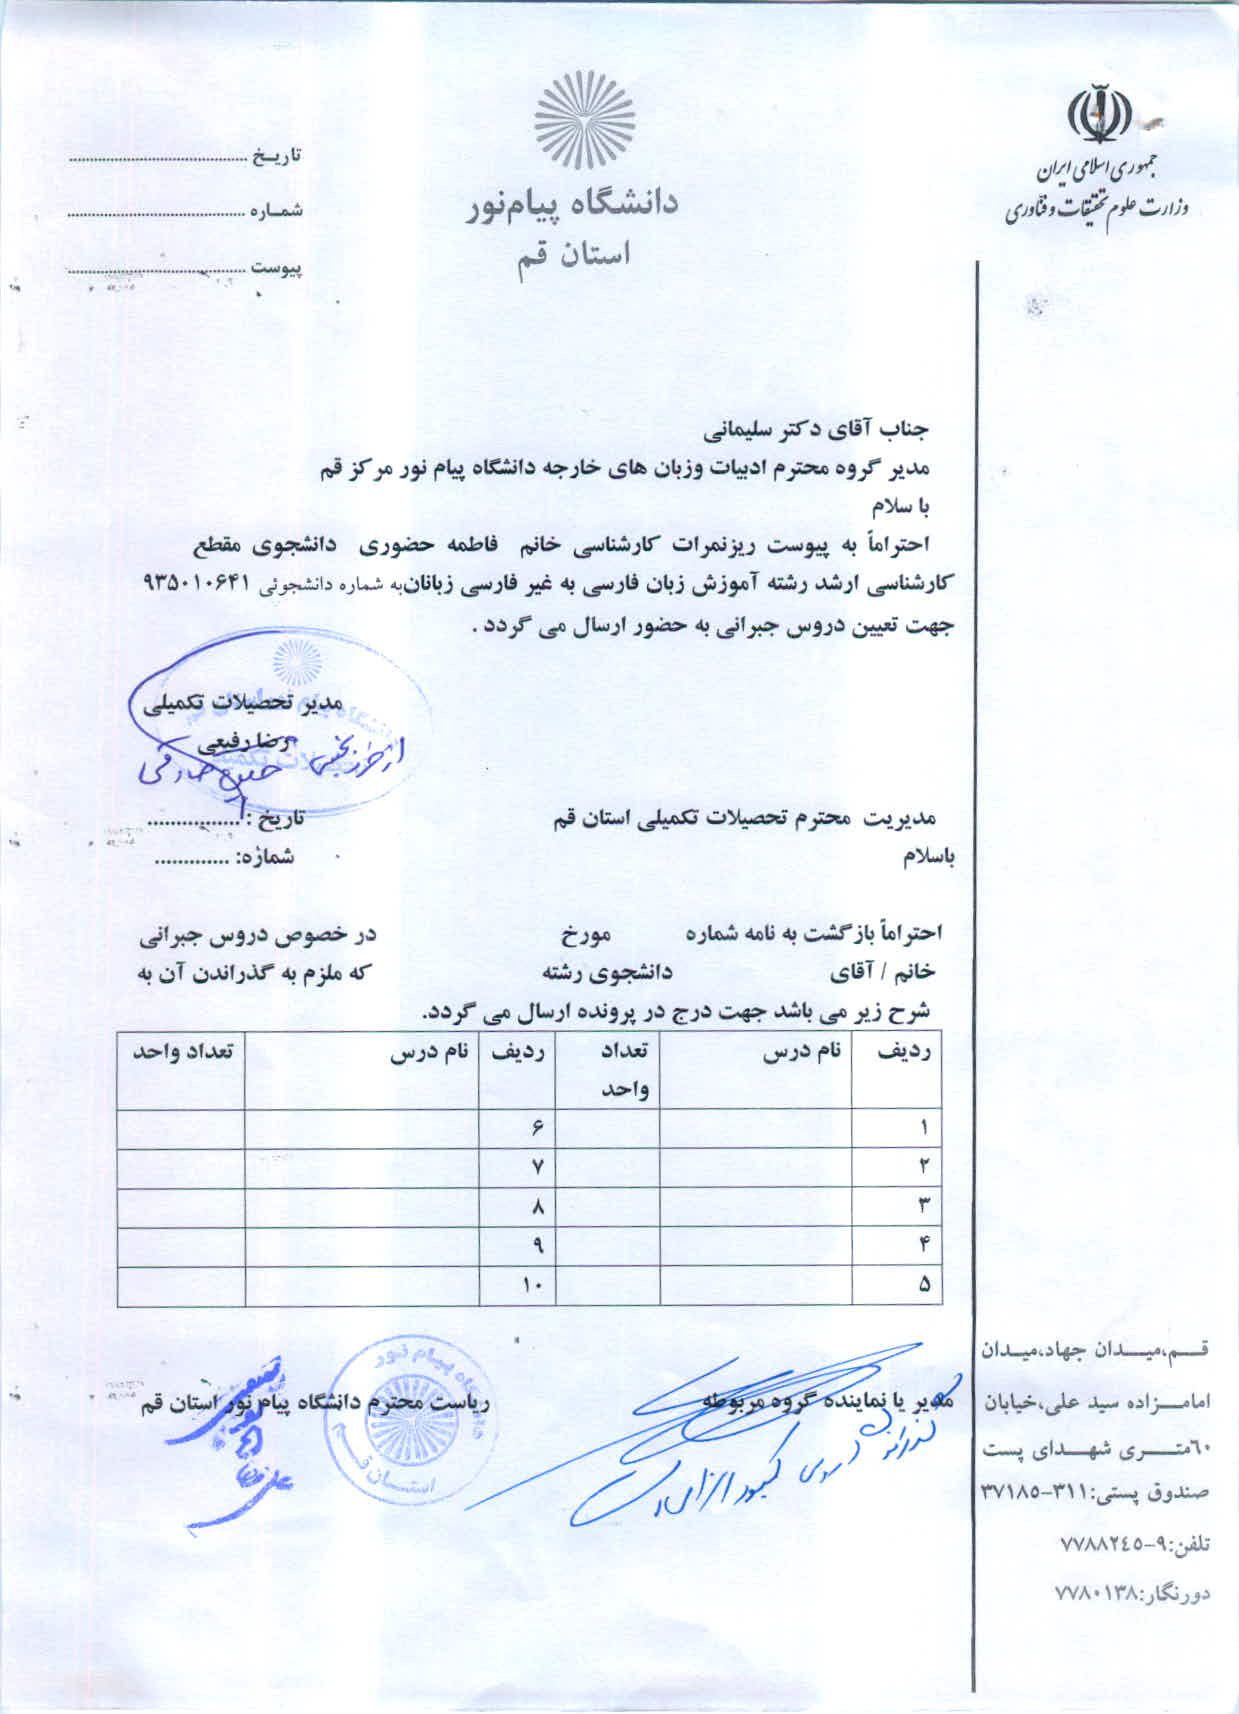 جمهوری اسلامی ایران
وزارت علوم تحقیقات و فناوری
دانشگاه پیام‌نور
استان قم
تاریـخ ..........................................
شمـاره ..........................................
پیوست ..........................................
جناب آقای دکتر سلیمانی
مدیر گروه محترم ادبیات وزبان های خارجه دانشگاه پیام نور مرکز قم
با سلام
احتراماً به پیوست ریزنمرات کارشناسی خانم فاطمه حضوری دانشجوی مقطع
کارشناسی ارشد رشته آموزش زبان فارسی به غیر فارسی زبانان‌به شماره دانشجوئی ۹۳۵۰۱۰۶۴۱
جهت تعیین دروس جبرانی به حضور ارسال می گردد .
مدیر تحصیلات تکمیلی
رضا رفیعی
مدیریت محترم تحصیلات تکمیلی استان قم
تاریخ : ................
باسلام
شماره: .............
احتراماً بازگشت به نامه شماره مورخ در خصوص دروس جبرانی
خانم / آقای دانشجوی رشته که ملزم به گذراندن آن به
شرح زیر می باشد جهت درج در پرونده ارسال می گردد.
ردیف نام درس تعداد واحد ردیف نام درس تعداد واحد
۱ ۶
۲ ۷
۳ ۸
۴ ۹
۵ ۱۰
مدیر یا نماینده گروه مربوطه
ریاست محترم دانشگاه پیام نور استان قم
دانشگاه پیام نور
استـان قـم
قـــم،میـــدان جهاد،میـدان
امامـــزاده سید علی،خیابان
۶۰متــــری شهـــدای پست
صندوق پستی:۳۱۱-۳۷۱۸۵
تلفن:۹-۷۷۸۸۲٤۵
دورنگار:۷۷۸۰۱۳۸